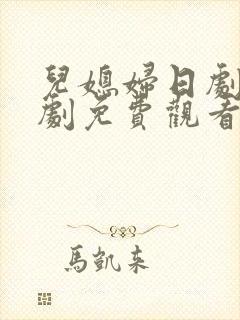 兒媳婦日劇
劇免費觀看
馬凱來